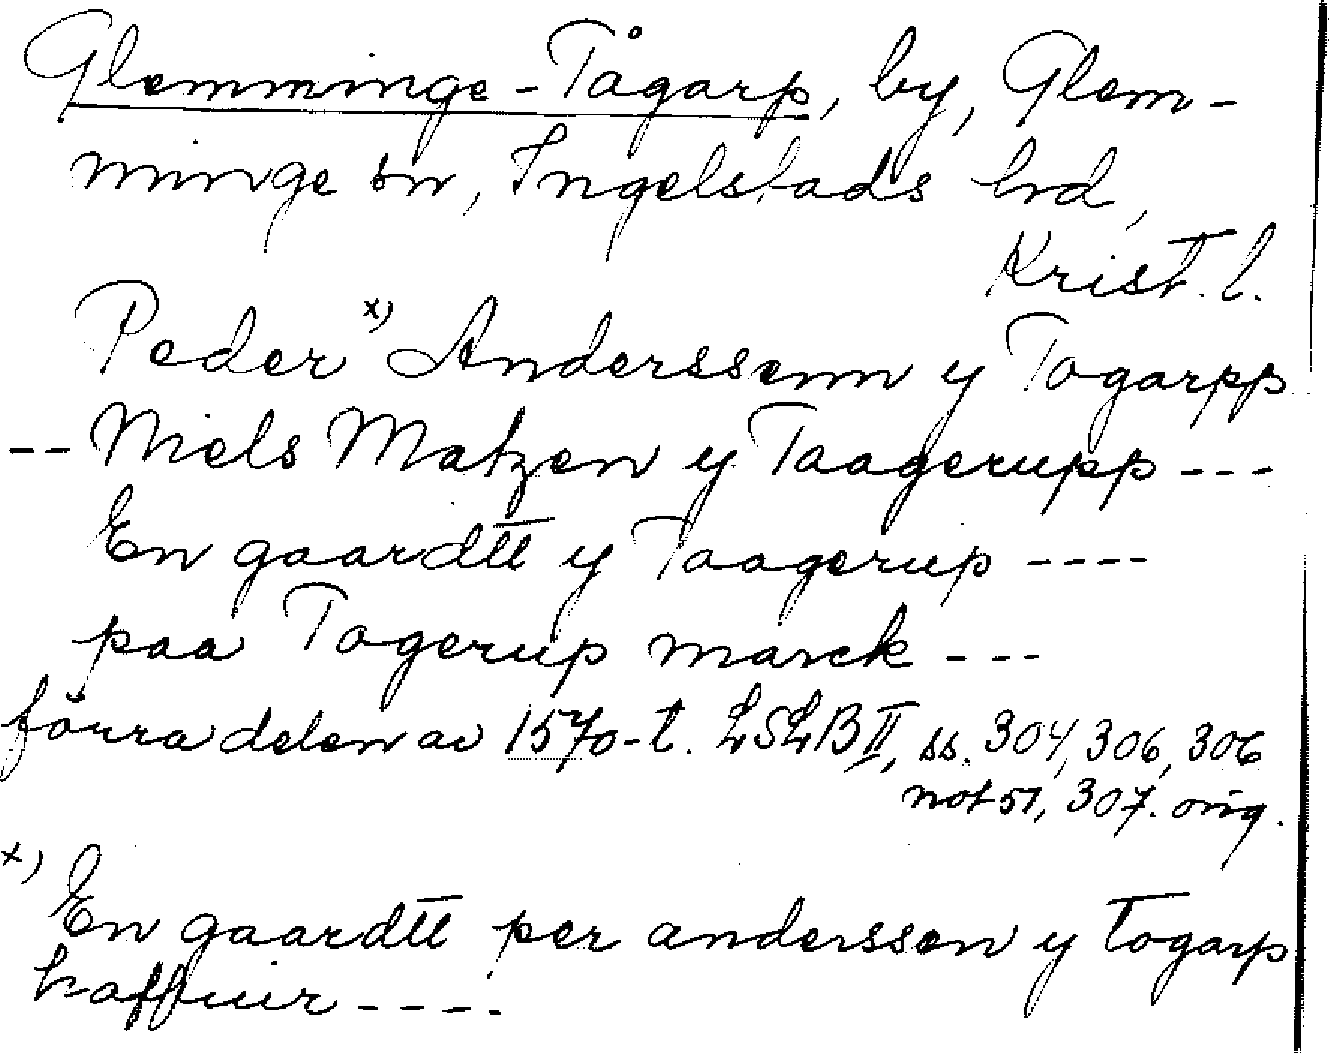 Glemminge-Tågarp, by, Glem-
minge sn, Ingelstads hd,
Krist. l.
Peder x) Anderssenn y Togarpp
-- Niels Matzen y Taagerupp ---
En gaardtt y Taagerup ----
paa Togerup marck ---
förra delen av 1570-t. LSLB II, ss. 304, 306, 306
not 51, 307. orig.
x)
En gaardtt per anderssen y Togarp
haffuir ----